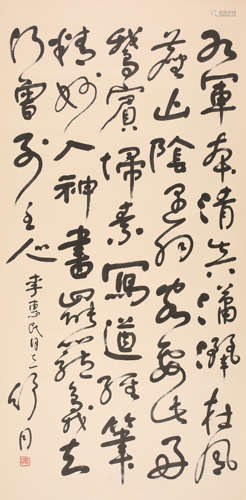 右軍本清真瀟灑在風
塵山陰遇羽客要此好
鵝賓掃素寫道經筆
精妙入神書罷籠鵝去
何曾別主人
李惠民同志 舒同